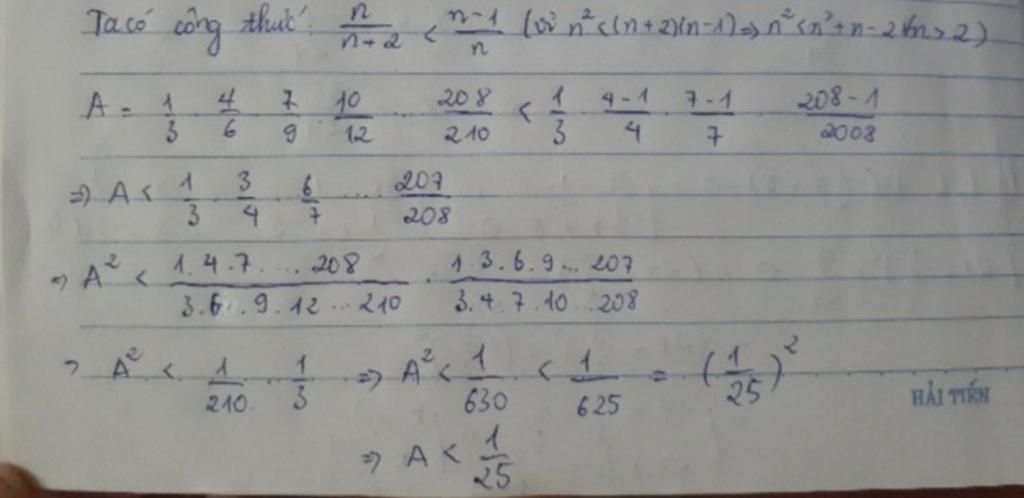 Ta có công thức: n/(n+2) < (n-1)/n (vì n² < (n+2)(n-1) => n² < n²+n-2 ∀n > 2)
A = 1/3 . 4/6 . 7/9 . 10/12 ... 208/210 < 1/3 . (4-1)/4 . (7-1)/7 (208-1)/2008
=> A < 1/3 . 3/4 . 6/7 .... 207/208
=> A² < (1.4.7. ... 208)/(3.6.9.12 ... 210) . (1.3.6.9... 207)/(3.4.7.10 ...208)
=> A² < 1/210 . 1/3 => A² < 1/630 < 1/625 = (1/25)²
HẢI TIẾN
=> A < 1/25